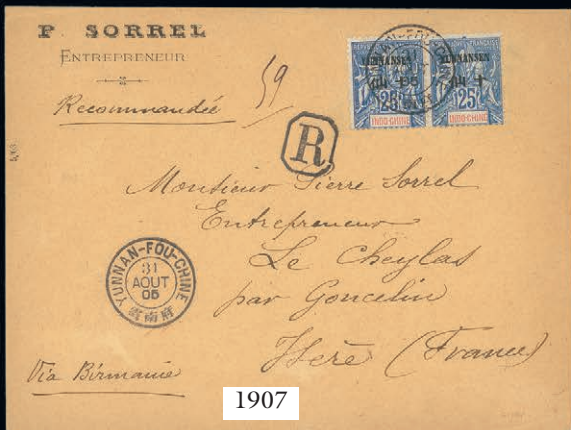 P. SORREL
ENTREPRENEUR
Recommandée
59
R
YUNNANSEN
YUNNANSEN
25 25
INDO-CHINE INDO-CHINE
Monsieur Pierre Sorrel
Entrepreneur
Le Cheylas
par Goncelin
Isère (France)
YUNNAN-FOU-CHINE
31
AOUT
05
雲南府
Via Birmanie
1907